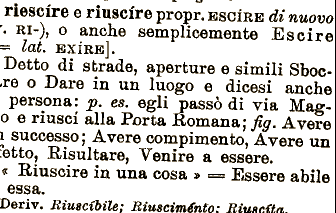 riescíre e riuscíre propr. ESCÍRE di nuovo
. RI-), o anche semplicemente Escire
= lat. EXÍRE].
Detto di strade, aperture e simili Sboc-
re o Dare in un luogo e dicesi anche
persona: p. es. egli passò di via Mag-
o e riuscí alla Porta Romana; fig. Avere
successo; Avere compimento, Avere un
fetto, Risultare, Venire a essere.
« Riuscire in una cosa » = Essere abile
essa.
Deriv. Riuscíbile; Riusciménto; Riuscíta.